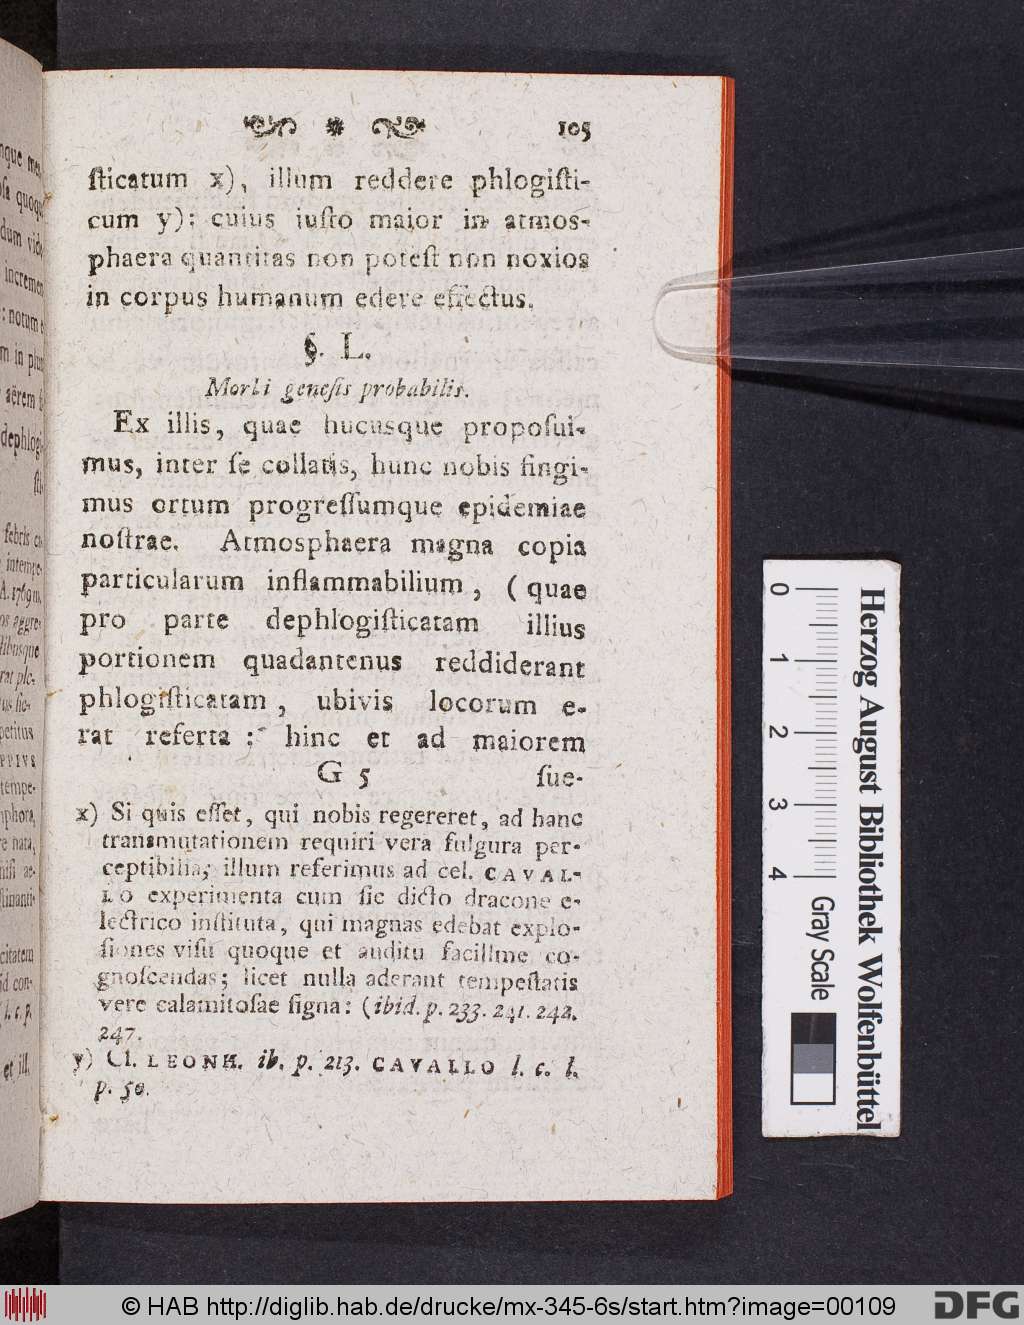 105
ſticatum x), illum reddere phlogiſti-
cum y): cuius iuſto maior in atmos-
phaera quantitas non poteſt non noxios
in corpus humanum edere effectus.
§. L.
Morbi geneſis probabilis.
Ex illis, quae hucusque propoſui-
mus, inter ſe collatis, hunc nobis fingi-
mus ortum progreſſumque epidemiae
noſtrae. Atmosphaera magna copia
particularum inflammabilium, (quae
pro parte dephlogiſticatam illius
portionem quadantenus reddiderant
phlogiſticatam, ubivis locorum e-
rat referta: hinc et ad maiorem
G 5 ſue-
x) Si quis eſſet, qui nobis regereret, ad hanc
transmutationem requiri vera fulgura per-
ceptibilia; illum referimus ad cel. CAVAL-
LO experimenta cum ſic dicto dracone e-
lectrico inſtituta, qui magnas edebat explo-
ſiones viſu quoque et auditu facillime co-
gnoſcendas; licet nulla aderant tempeſtatis
vere calamitoſae ſigna: (ibid. p. 233. 241. 242.
247.
y) Cl. LEONH. ib. p. 213. CAVALLO l. c. l.
p. 50.
Herzog August Bibliothek Wolfenbüttel
0 1 2 3 4
Gray Scale
© HAB http://diglib.hab.de/drucke/mx-345-6s/start.htm?image=00109
DFG